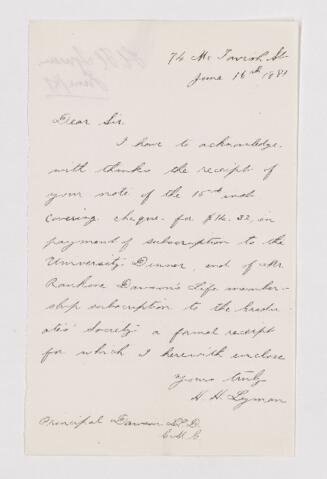 74 Mc Tavish St.
June 16th 1881
Dear Sir.
I have to acknowledge
with thanks the receipt of
your note of the 15th inst
covering cheque for $16.32, in
payment of subscription to the
University Dinner, and of Mr
Rankine Dawson's Life member-
ship subscription to the Gradu
ates' Society a formal receipt
for which I herewith enclose
Yours truly
H. H. Lyman
Principal Dawson LL.D.
C.M.G